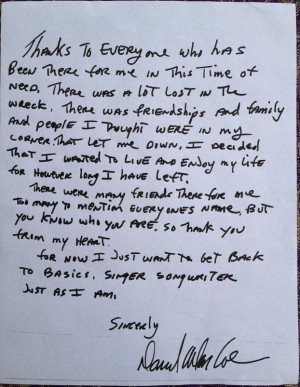 Thanks To EVERYone who has
BEEN THERE for me in This Time of
NEED. THERE was A LOT LOST in The
WRECK. THERE was friendships and family
And people I Thought WERE in my
CORNER THAT LET me Down. I decided
That I wanted to LIVE AND ENjoy my Life
for However long I have Left.
THERE were many friends There for me
Too many To mention EVERYONES NAME, But
you Know who you ARE. so Thank you
from my HEART.
for now I Just want To get Back
To Basics. SINGER SONGWRITER
JUST AS I AM.
Sincerly
David Allan Coe